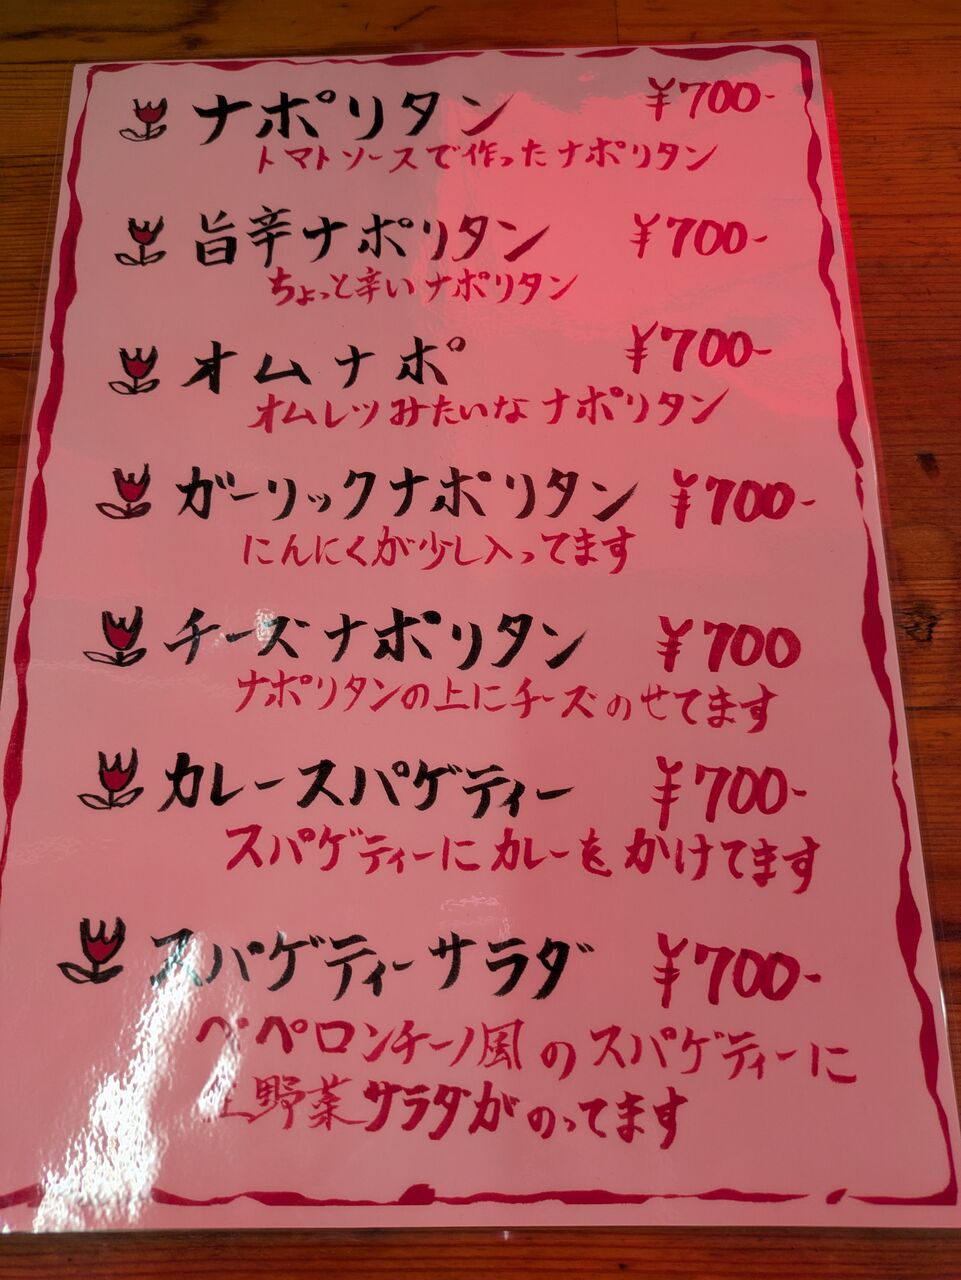 ナポリタン ¥700-
トマトソースで作ったナポリタン
旨辛ナポリタン ¥700-
ちょっと辛いナポリタン
オムナポ ¥700-
オムレツみたいなナポリタン
ガーリックナポリタン ¥700-
にんにくが少し入ってます
チーズナポリタン ¥700
ナポリタンの上にチーズのせてます
カレースパゲティー ¥700-
スパゲティーにカレーをかけてます
スパゲティーサラダ ¥700-
ペペロンチーノ風のスパゲティーに
生野菜サラダがのってます